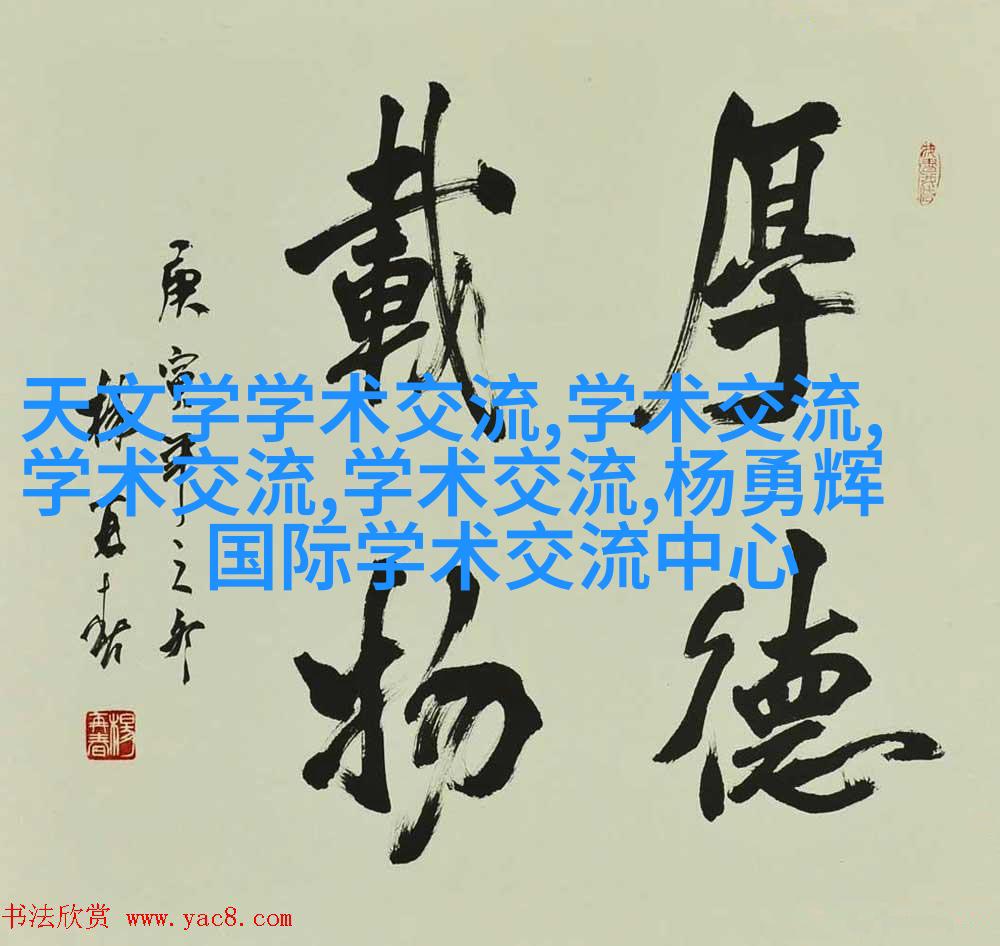 厚德
載物
庚寅年之
楊再春
楊再春
天文学学术交流,学术交流,
学术交流,学术交流,杨勇辉
国际学术交流中心
书法欣赏 www.yac8.com